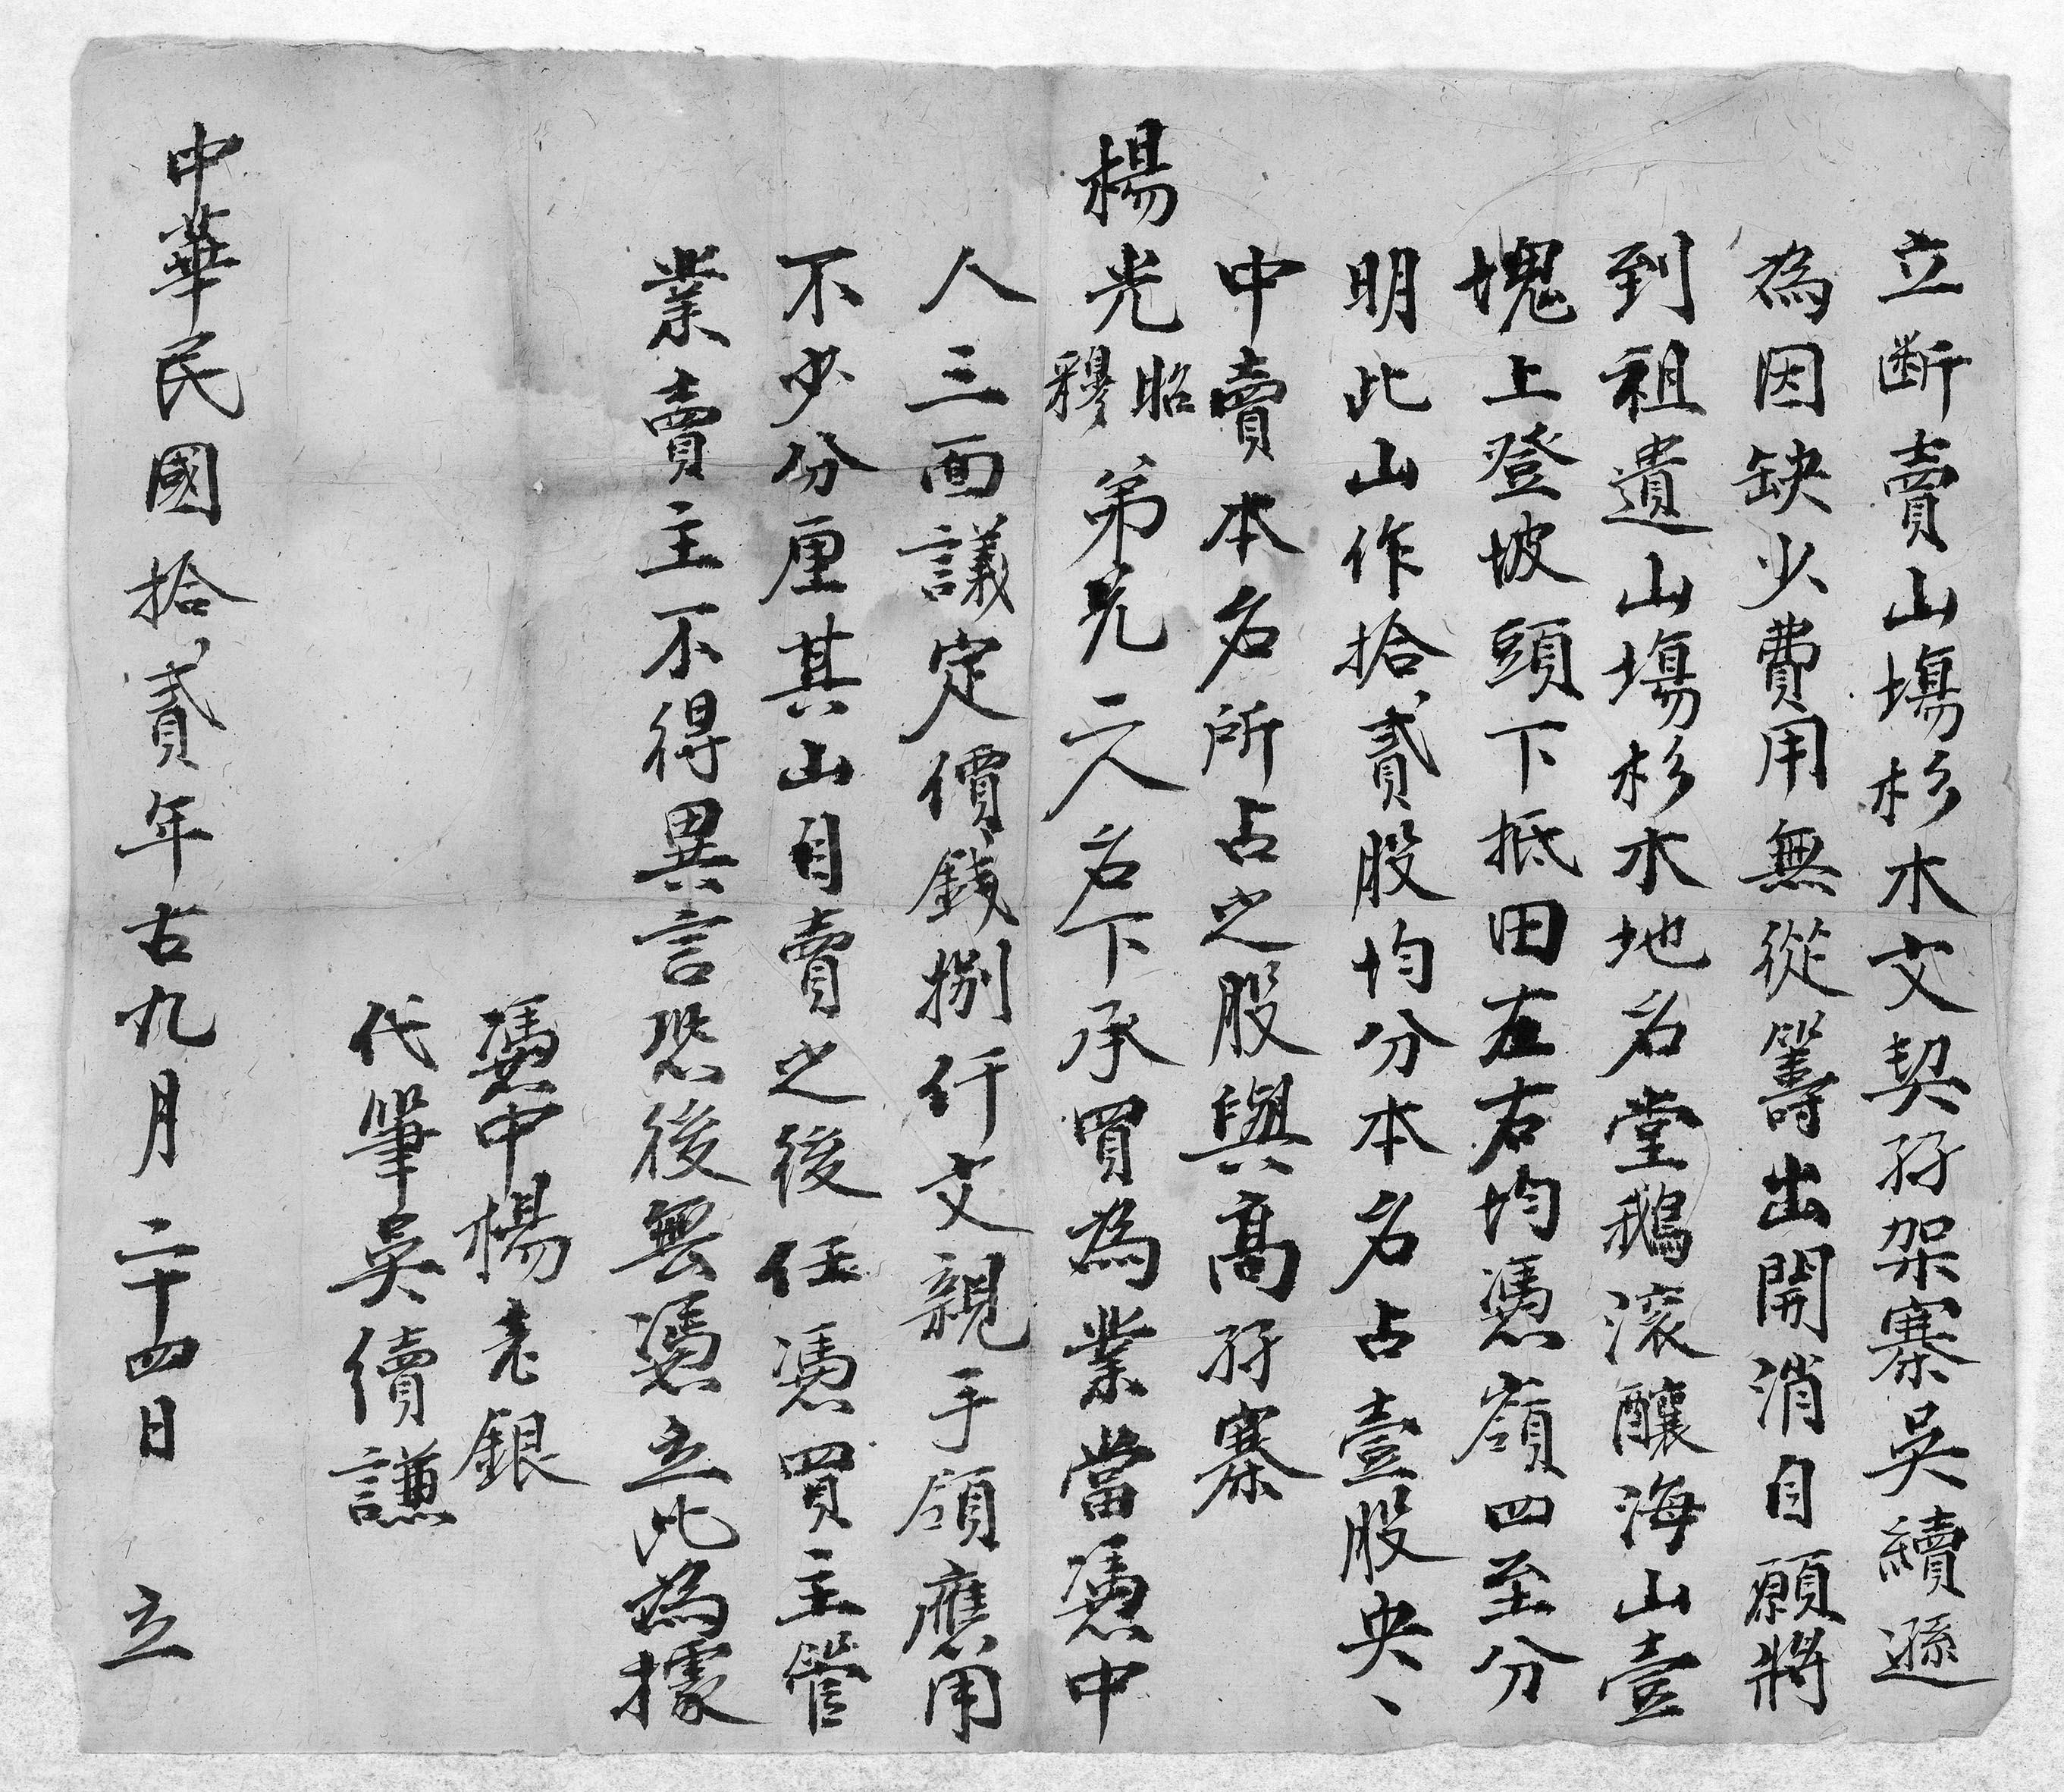 立断賣山塲杉木文契孖架寨吳續遜
為因缺少費用無從籌出開消自願將
到祖遺山塲杉木地名堂鵝滚釀海山壹
塊上登坡頭下抵田左右均憑嶺四至分
明此山作拾貳股均分本名占壹股央、
中賣本名所占之股與高孖寨
楊光昭穆弟兄二人名下承買為業當憑中
人三面議定價錢捌仟文親手領應用
不少份厘其山自賣之後任憑買主管
業賣主不得異言恐後無憑立此為據
憑中楊老銀
代筆吳續謙
中華民國拾貳年古九月二十四日 立